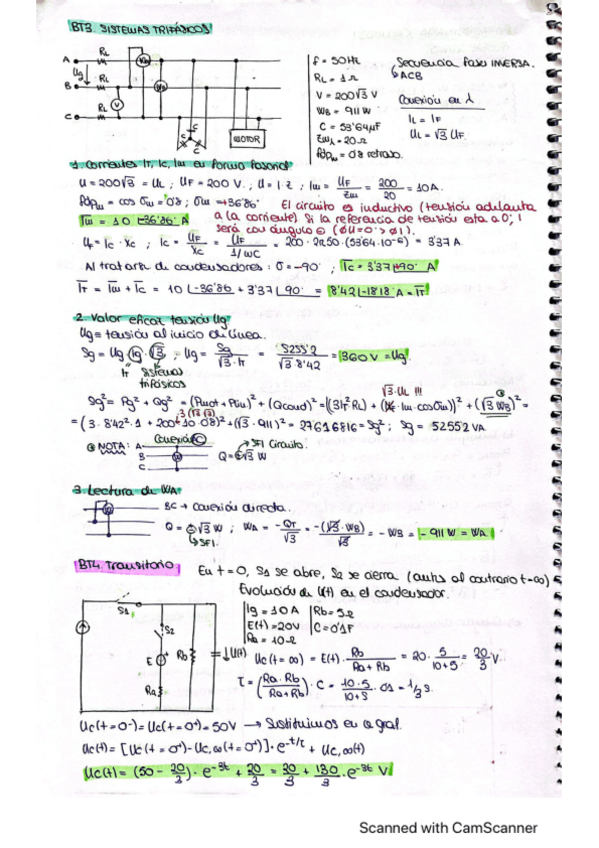 BT3. SISTEMAS TRIFÁSICOS
A
RL
WA
Ug
RL
B
WB
RL
V
C
C
C
C
MOTOR
f = 50Hz
RL = 1Ω
V = 200√3 V
WB = 911 W
C = 53'64μF
Zm⅄ = 20Ω
fdpm = 0'8 retraso.
Secuencia fases INVERSA.
↳ ACB
Conexión en ⅄
IL = IF
UL = √3 UF.
1. Corrientes IT, IC, Im en forma fasorial
U = 200√3 = UL ; UF = 200 V. ; U = I·Z ; Im = UF/Zm = 200/20 = 10A.
fdpm = cos σm = 0'8 ; σm = +36'86° El circuito es inductivo (tensión adelanta
Im = 10 ∠-36'86° A a la corriente) Si la referencia de tensión esta a 0°, I
será con ángulo ⊖ (φU = 0° > φI).
UF = IC · XC ; IC = UF/XC = UF/(1/ωC) = 200 · 2π50 (53'64·10⁻⁶) = 3'37 A.
Al tratarse de condensadores: σ = -90° ; IC = 3'37∠+90° A
IT = Im + IC = 10∠-36'86 + 3'37∠90° = 8'42∠-18'18° A = IT
2. Valor eficaz tensión Ug
Ug = tensión al inicio de línea.
Sg = Ug · Ig · √3 ; Ug = Sg/(√3 · IT) = 5255'2/(√3 · 8'42) = 360 V = Ug
IT sistemas
trifásicos
√3·UL !!!
Sg² = Pg² + Qg² = (Pmot + Plin)² + (Qcond)² = ((3IT² RL) + (Im · cos σm))² + (√3 WB)² =
3 (√3 √3)
= (3 · 8'42² · 1 + 200 · 10 · 0'8)² + (√3 · 911)² = 27616816 = Sg² ; Sg = 5255'2 VA.
NOTA: A
Conexión C
B
C
W
Q = √3 W
SFI Circuito.
3. Lectura de WA
BC → conexión directa.
Q = √3 W ; WA = -QT/√3 = -(√3 · WB)/√3 = -WB = -911 W = WA
↳ SFI.
BT4. Transitorio
En t = 0, S1 se abre, S2 se cierra (antes al contrario t = ∞)
Evolución de U(t) en el condensador.
S1
S2
E
Rb
Ra
U(t)
Ig = 10 A
E(t) = 20V
Ra = 10Ω
Rb = 5Ω
C = 0'1F
Uc(t = ∞) = E(t) · Rb/(Ra + Rb) = 20 · 5/(10+5) = 20/3 V.
τ = (Ra · Rb/(Ra + Rb)) · C = 10·5/(10+5) · 0'1 = 1/3 s.
Uc(t = 0⁻) = Uc(t = 0⁺) = 50V → Sustituimos en
Uc(t) = [Uc(t = 0⁺) - Uc,∞(t = 0⁺)] · e^-t/τ + Uc,∞(t)
Uc(t) = (50 - 20/3) · e^-3t + 20/3 = 20/3 + 130/3 · e^-3t V
Scanned with CamScanner